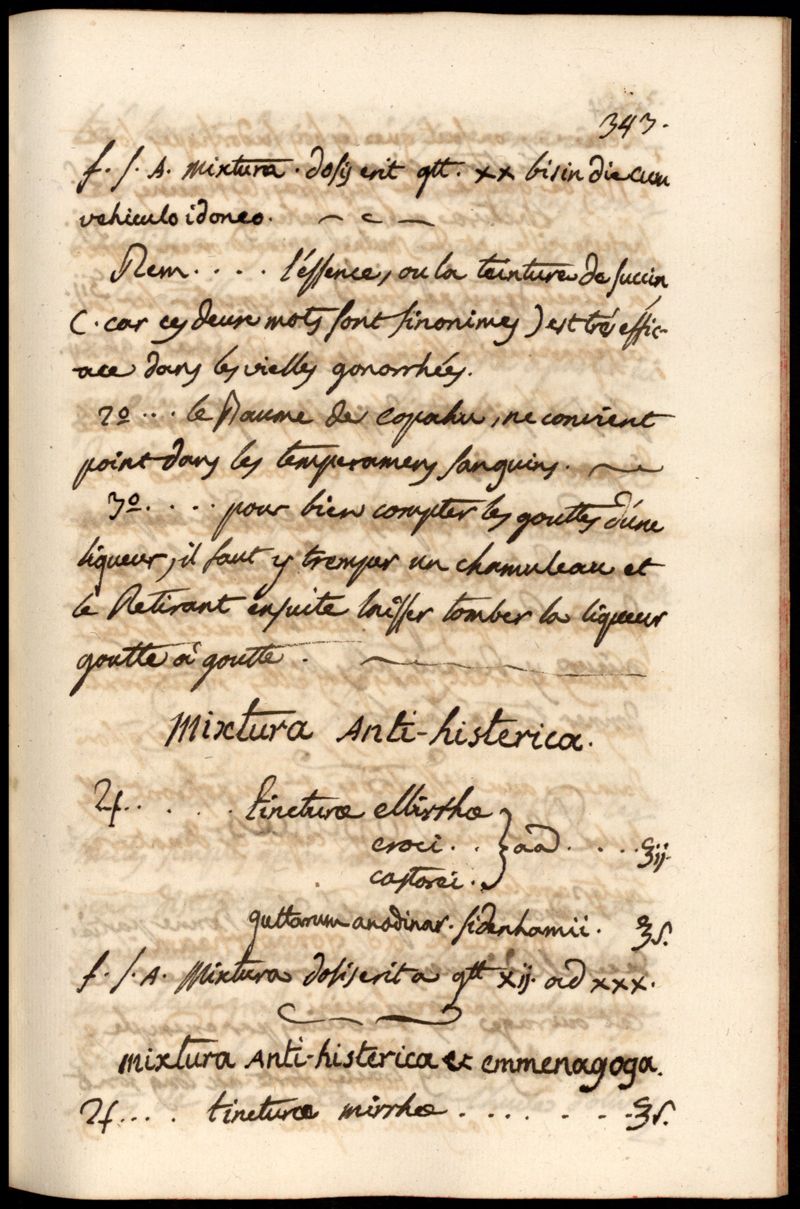 343.
f. s. A. mixtura. dosis erit gtt. xx bis in die cum
vehiculo idoneo.
Rem.... l'éssence, ou la teinture de succin
(. car ces deux mots sont sinonimes) est trés effic-
ace dans les vielles gonorrhées.
2º... le Baume de copahu, ne convient
point dans les temperamens sanguins.
3º.... pour bien compter les gouttes d'úne
liqueur, il faut y tremper un chamuleau et
le Retirant ensuite laisser tomber la liqueur
goutte à goutte.
Mixtura Anti-histerica.
♃..... tincturæ Mirrhæ
croci.. } aã .... ʒij.
castorei..
guttarum anodinar. sidenhamii. ʒs.
f. s. A. Mixtura dosis erit a gtt xij. ad xxx.
mixtura Anti-histerica & emmenagoga.
♃.... tincturæ mirrhæ ....... ʒs.